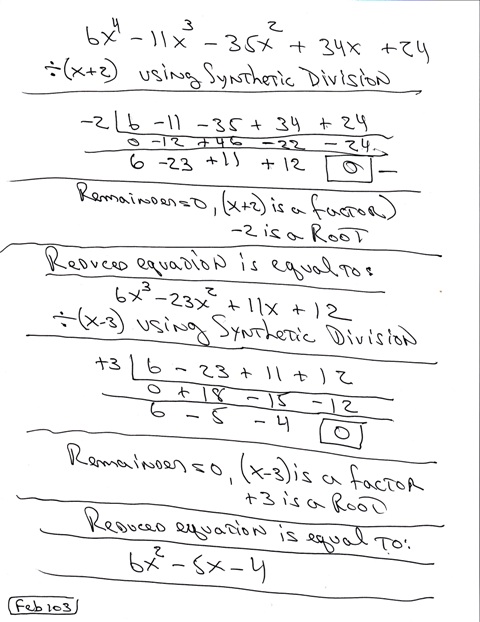 6x⁴ - 11x³ - 35x² + 34x + 24
÷(x+2) using Synthetic Division
-2 | 6 -11 -35 + 34 + 24
0 -12 +46 -22 -24
6 -23 +11 +12 0
Remainder=0, (x+2) is a factor)
-2 is a Root
Reduced equation is equal to:
6x³ - 23x² + 11x + 12
÷(x-3) using Synthetic Division
+3 | 6 - 23 + 11 + 12
0 + 18 - 15 - 12
6 - 5 - 4 0
Remainder=0, (x-3) is a factor
+3 is a Root
Reduced equation is equal to:
6x² - 5x - 4
Feb103